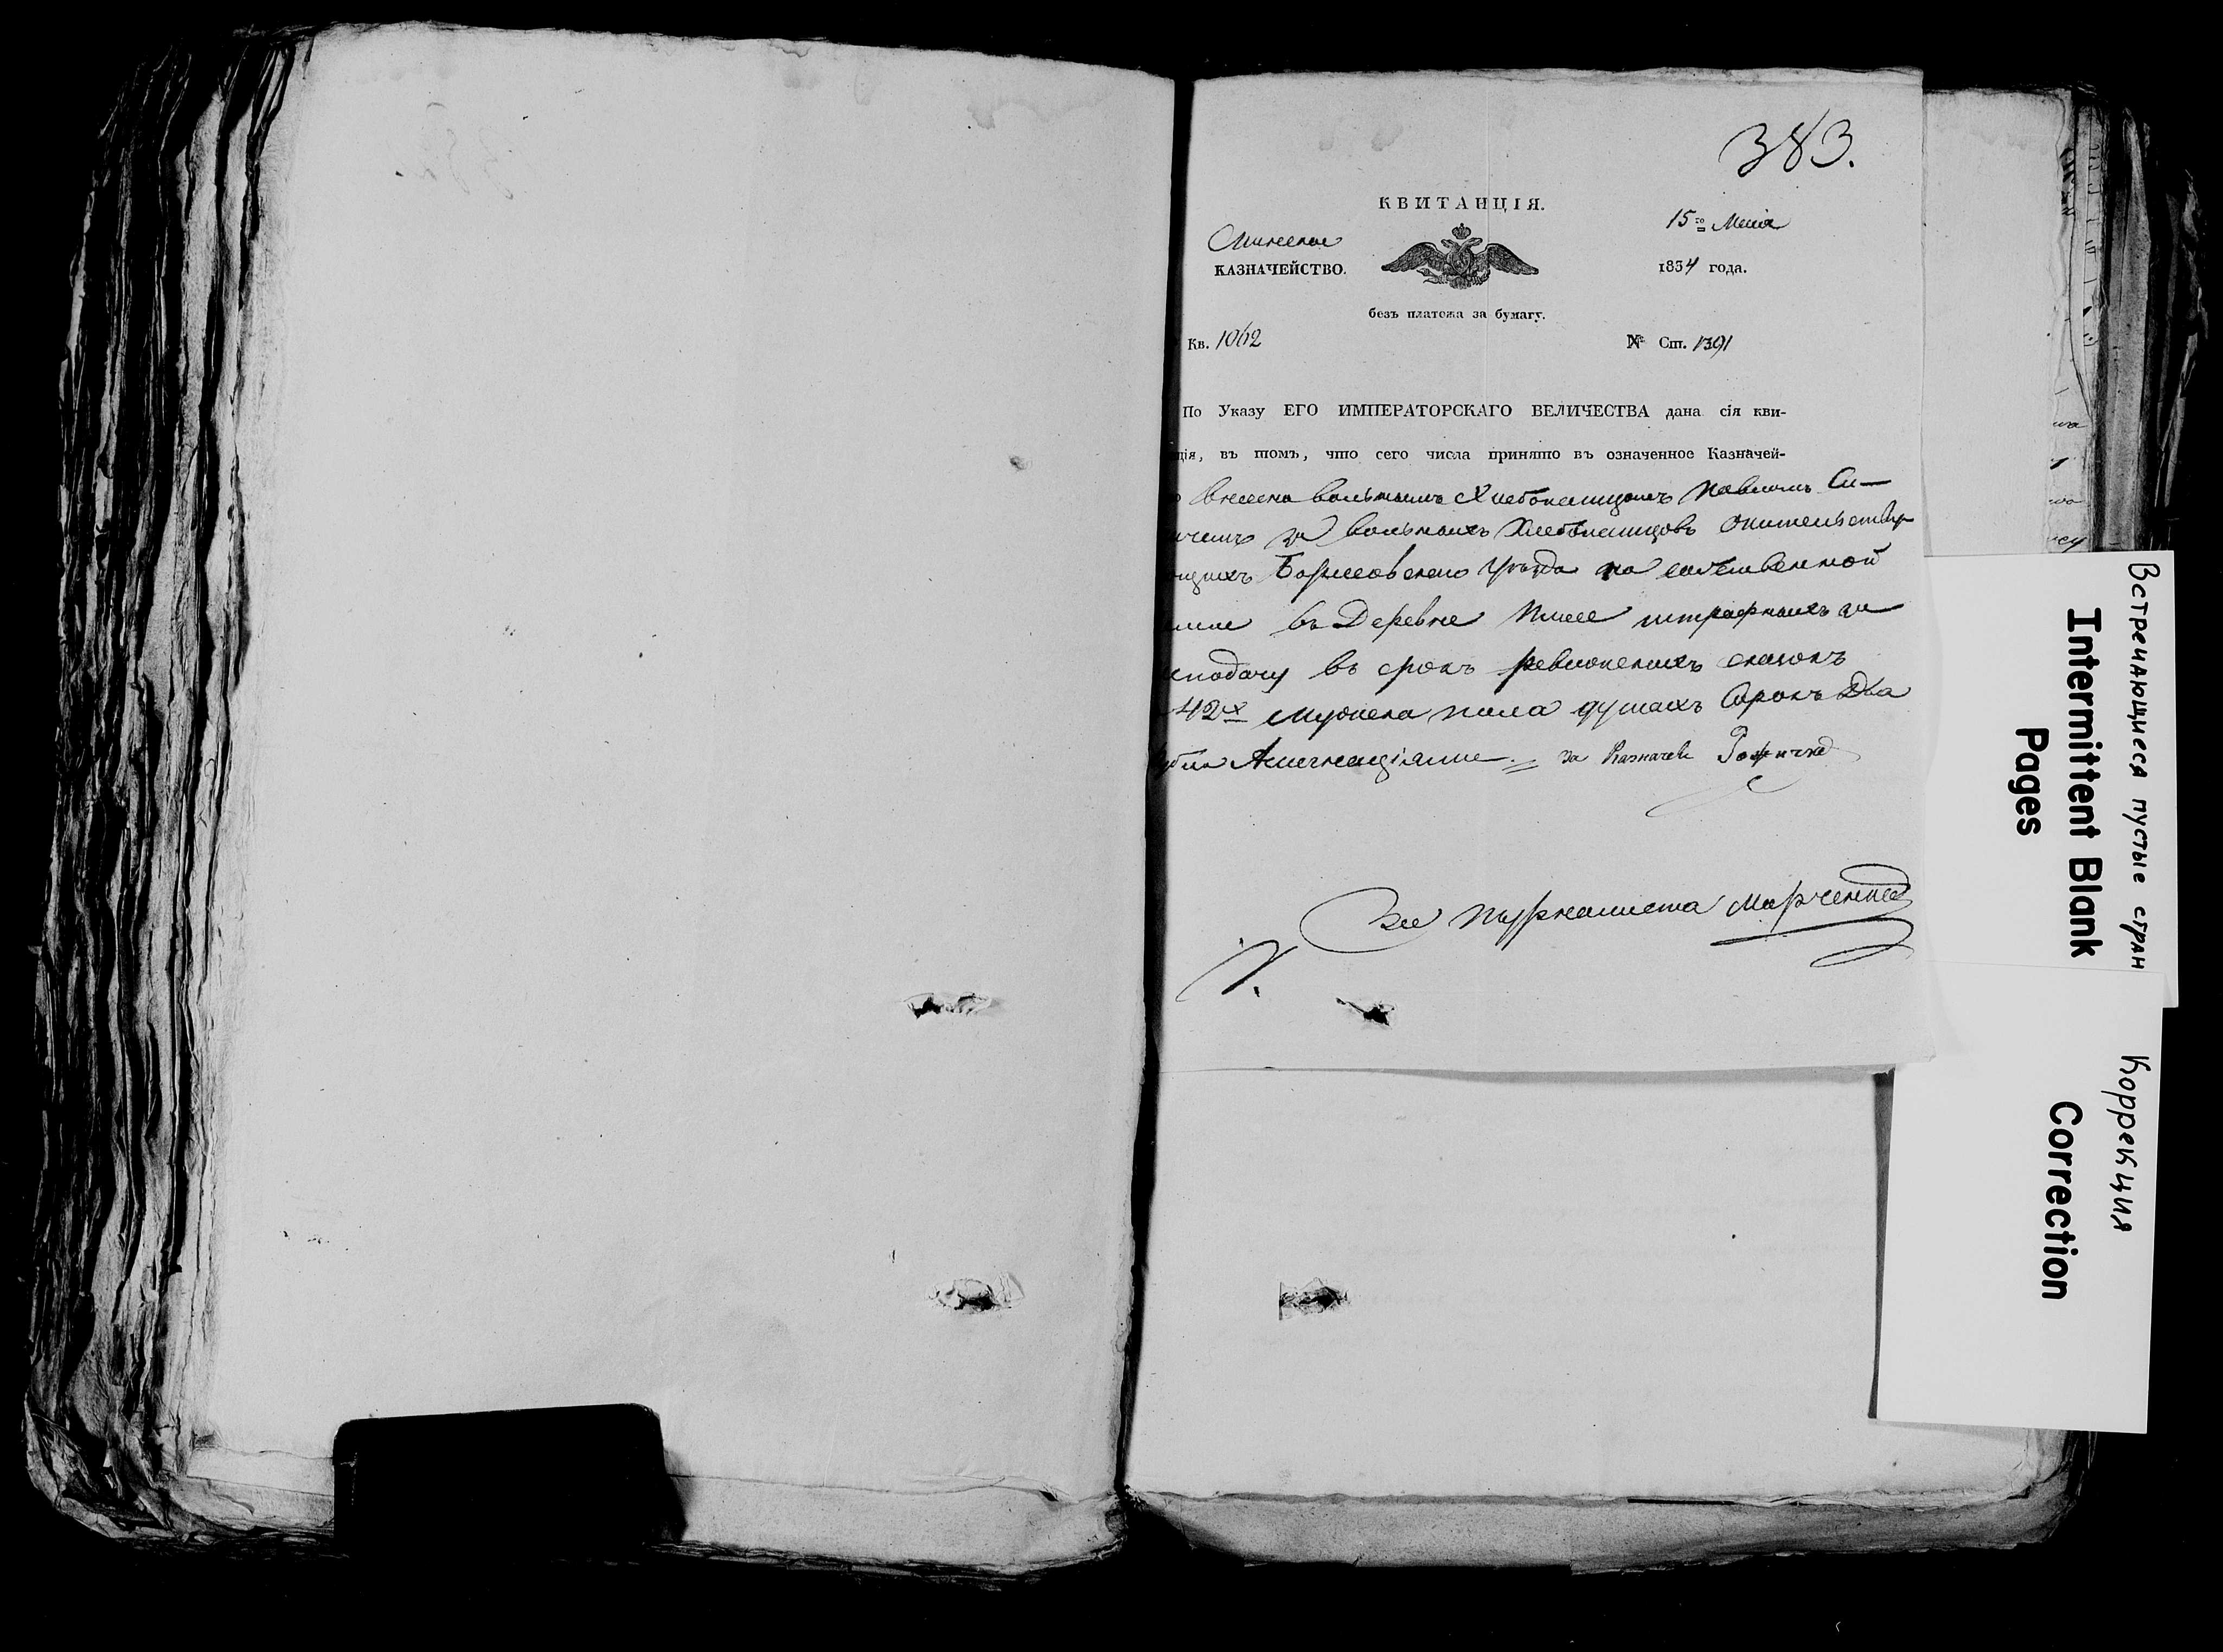 383.
КВИТАНЦІЯ.
15го Маія
Минское
КАЗНАЧЕЙСТВО.
1834 года.
безъ платежа за бумагу.
Кв. 1062
№ Ст. 1391
По Указу ЕГО ИМПЕРАТОРСКАГО ВЕЛИЧЕСТВА дана сія кви-
ція, въ томъ, что сего числа принято въ означенное Казначей-
внесено вольнымъ Хлебопашцомъ Павломъ Си-
за вольныхъ Хлебопашцовъ жительству
ющихъ Борисовскаго Уѣзда на собственной
въ Деревне штрафныхъ за
неподачу въ срокъ ревизскихъ сказокъ
42х мужеска пола душахъ Сорокъ два
Асигнаціями. за Казначея
За Журналиста Марченко
Встречающиеся пустые стран
Intermittent Blank
Pages
Коррекция
Correction